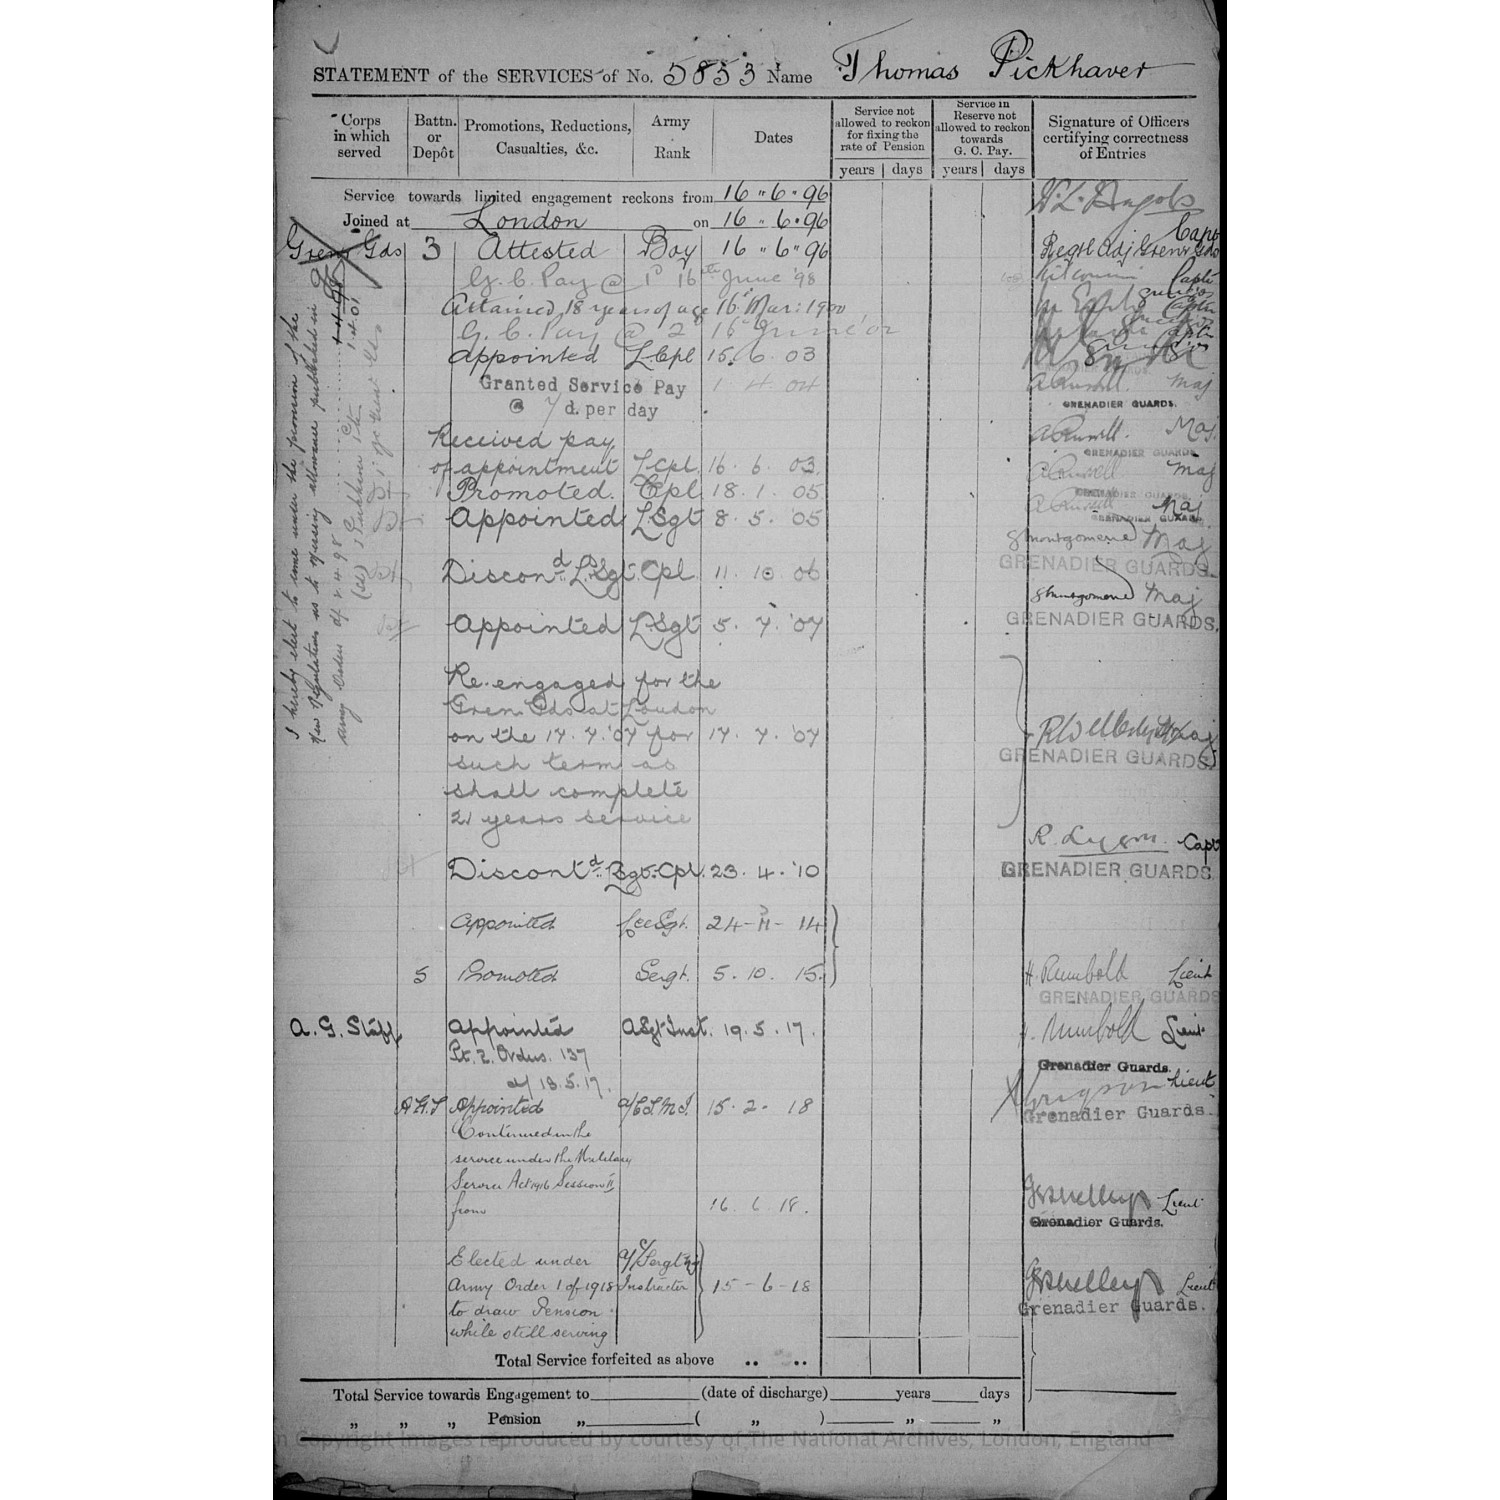 STATEMENT of the SERVICES of No. 5853 Name Thomas Pickhaver
Corps in which served
Battn. or Depôt
Promotions, Reductions, Casualties, &c.
Army Rank
Dates
Service not allowed to reckon for fixing the rate of Pension
Service in Reserve not allowed to reckon towards G. C. Pay.
Signature of Officers certifying correctness of Entries
years days years days
Service towards limited engagement reckons from 16 " 6 " 96
Joined at London on 16 " 6 " 96
Capt
Gren Gds 3 Attested Boy 16 " 6 " 96 Regtl Adj Grenr Gds
G. C. Pay @ 1d 16th June '98 Capt
Attained 18 years of age 16 Mar: 1900
G. C. Pay @ 2d 16th June '01
Appointed L.Cpl 15. 6. 03
Granted Service Pay 1 4 04 A Russell. Maj
@ 7 d. per day GRENADIER GUARDS.
Received pay A Russell. Maj.
GRENADIER GUARDS.
of appointment L.Cpl. 16. 6. 03. A Russell Maj
Promoted. Cpl 18. 1. 05 A Russell Maj
GRENADIER GUARDS.
Appointed L.Sgt 8. 5. '05 GRENADIER GUARDS.
Montgomerie Maj
GRENADIER GUARDS.
Discond. L.Sgt. Cpl. 11. 10. 06
Montgomerie Maj
GRENADIER GUARDS.
Appointed L.Sgt 5. 7. '07
Re-engaged for the
Gren Gds at London
on the 17. 7. '07 for 17. 7. '07 Maj
such term as GRENADIER GUARDS.
shall complete
21 years service
R. Capt
Discontd. L.Sgt.-Cpl. 23. 4. '10 GRENADIER GUARDS.
Appointed Lce Sgt. 24 - 11 - 14
5 Promoted Sergt. 5. 10. 15. H. Rumbold Lieut
GRENADIER GUARDS
A. G. Staff Appointed A Sgt Inst. 19. 5. 17. H. Rumbold Lieut
Pt. 2. Orders. 137 Grenadier Guards.
d/ 18. 5. 17. Lieut
A.G.S Appointed a/C.S.M.I. 15. 2. 18 Grenadier Guards.
Continued in the
service under the Military
Service Act 1916 Session II
from 16. 6. 18. Lieut
Grenadier Guards.
Elected under
Army Order 1 of 1918 Instructor 15 - 6 - 18 Lieut
to draw Pension Grenadier Guards.
while still serving
Total Service forfeited as above .. ..
Total Service towards Engagement to (date of discharge) years days
" " " Pension " ( " ) " "
I hereby elect to come under the provision of the
New Regulations as to messing allowance published in
Army Order d/ 2.4.98
(sd) T Pickhaver Pte
1.4.01
Copyright Images reproduced by courtesy of The National Archives, London, England